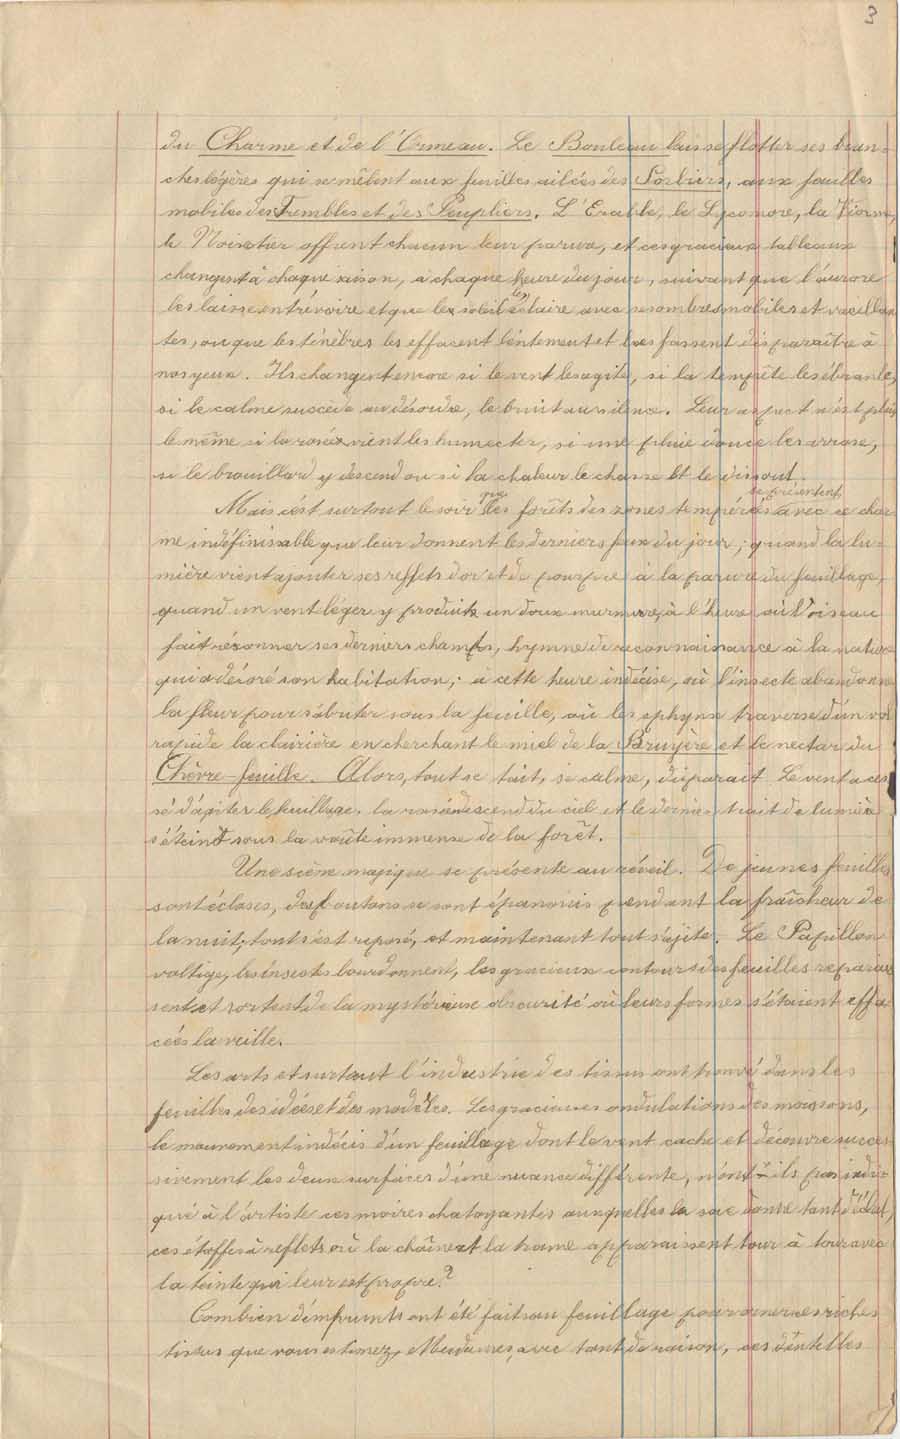 3
du Charme et de l'Ormeau. Le Bouleau laisse flotter ses bran-
ches légères qui se mêlent aux feuilles ailées des Sorbiers, aux feuilles
mobiles des Trembles et des Peupliers. L'Erable, le Sycomore, la Viorne,
le Noisetier offrent chacun leur parure, et ces gracieux tableaux
changent à chaque saison, à chaque heure du jour, suivant que l'aurore
les laisse entrévoire et que le soleil les éclaire avec ses ombres mobiles et vacillan
tes, ou que les ténèbres les effacent lentement et les fassent disparaître à
nos yeux. Ils changent encore si le vent les agite, si la tempête les ébranle,
si le calme succède au désordre, le bruit au silence. Leur aspect n'est plus
le même si la rosée vient les humecter, si une pluie douce les arrose,
si le brouillard y descend ou si la chaleur le chasse et le dissout.
se présentent
Mais c'est surtout le soir que les forêts des zones tempérées avec ce char
me indéfinissable que leur donnent les derniers feux du jour; quand la lu-
mière vient ajouter ses reflets d'or et de pourpre à la parure du feuillage,
quand un vent léger y produit un doux murmure, à l'heure où l'oiseau
fait résonner ses derniers chants, hymne de reconnaissance à la nature
qui a décoré son habitation; à cette heure indécise, où l'insecte abandonne
la fleur pour s'abriter sous la feuille, où les sphynx traverse d'un vol
rapide la clairière en cherchant le miel de la Bruyère et le nectar du
Chèvre-feuille. Alors, tout se tait, se calme, disparait. Le vent a ces
sé d'agiter le feuillage, la rosée descend du ciel et le dernier trait de lumière
s'éteint sous la voûte immense de la forêt.
Une scène magique se présente au réveil. De jeunes feuilles
sont écloses, des boutons se sont épanouis pendant la fraîcheur de
la nuit, tout s'est reposé, et maintenant tout s'agite. Le Papillon
voltige, les insectes bourdonnent, les gracieux contours des feuilles reparais
sent et sortent de la mystérieuse obscurité où leurs formes s'étaient effa
cées la veille.
Les arts et surtout l'industrie des tissus ont trouvé dans les
feuilles des idées et des modèles. Les gracieuses ondulations des moissons,
le mouvement indécis d'un feuillage dont le vent cache et découvre succes
sivement les deux surfaces d'une nuance différente, n'ont-ils pas indi-
qué à l'artiste ces moires chatoyantes auxquelles la soie donne tant d'éclat,
ces étoffes à reflets où la chaîne et la trame apparaissent tour à tour avec
la teinte qui leur est propre?
Combien d'emprunts ont été faits au feuillage pour orner ces riches
tissus que vous estimez, Mesdames, avec tant de raison, ces dentelles